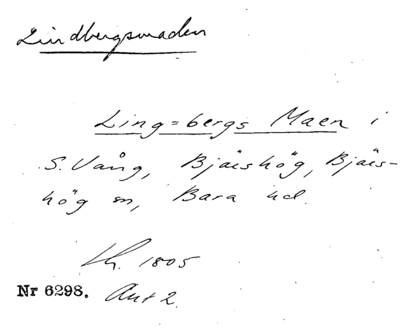 Lindbergsmaden
Ling=bergs Maen i
S. Vång, Bjäishög, Bjäis-
hög sn, Bara hd.
Lh. 1805
Nr 6298. Akt 2.